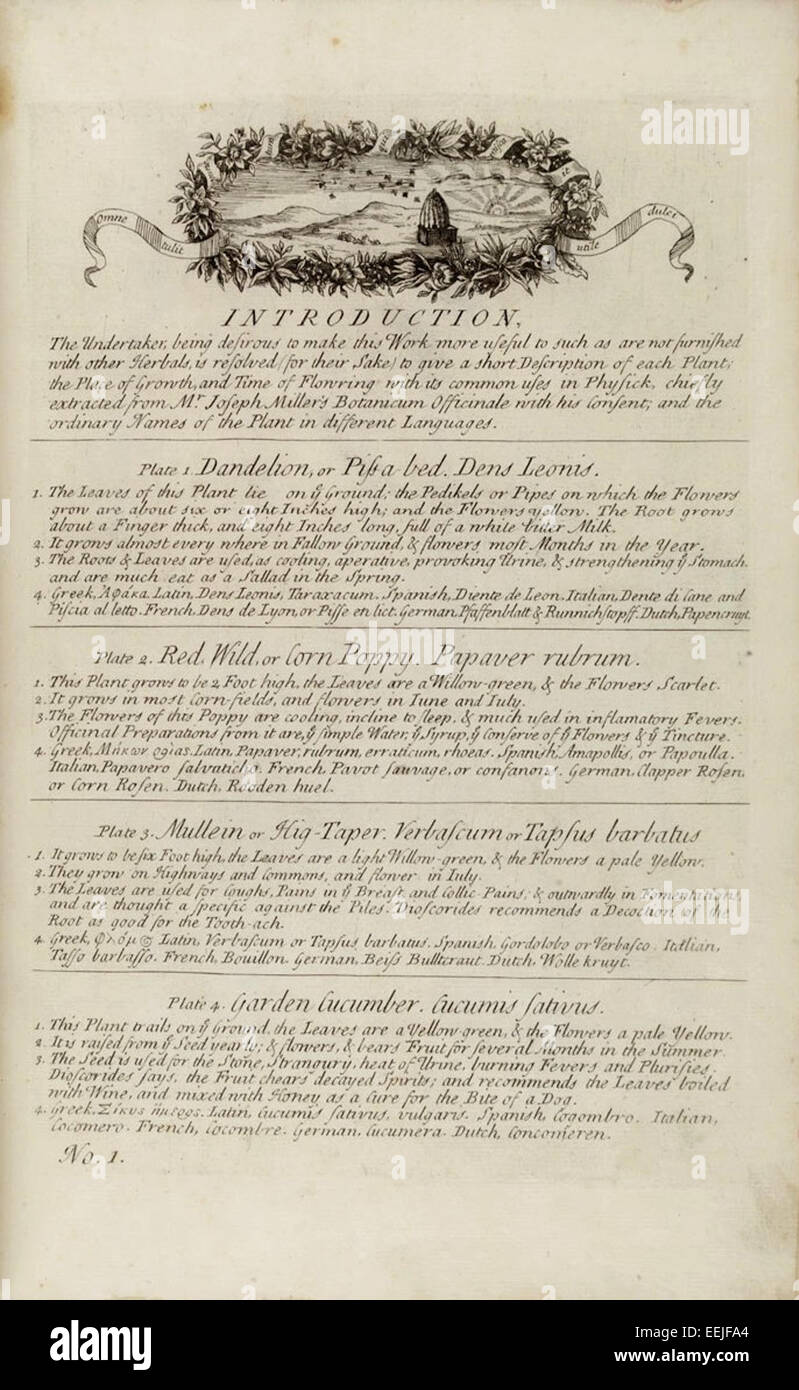 Omne
tulit
punctum
qui
utile
dulci
INTRODUCTION,
The Undertaker, being desirous to make this Work more useful to such as are not furnished
with other Herbals, is resolved (for their Sake) to give a short Description of each Plant;
the Place of Growth, and Time of Flowring with its common uses in Physick, chiefly
extracted from Mr Joseph Miller's Botanicum Officinale with his Consent; and the
ordinary Names of the Plant in different Languages.
Plate 1. Dandelion, or Piss-a-bed. Dens Leonis.
1. The Leaves of this Plant lie on ye Ground; the Pedikels or Pipes on which the Flowers
grow are about six or eight Inches high; and the Flowers yellow. The Root grows
about a Finger thick, and eight Inches long, full of a white bitter Milk.
2. It grows almost every where in Fallow Ground, & flowers most Months in the Year.
3. The Roots & Leaves are used, as cooling, aperative, provoking Urine, & strengthening ye Stomach.
and are much eat as a Sallad in the Spring.
4. Greek, Αφάκα. Latin, Dens Leonis, Taraxacum. Spanish, Diente de Leon. Italian, Dente di Cane and
Piscia al letto. French, Dens de Lyon, or Pisse en lict. German, Pfaffenblatt & Runnichstopff. Dutch, Papencruyt.
Plate 2. Red, Wild, or Corn Poppy. Papaver rubrum.
1. This Plant grows to be 2 Foot high, the Leaves are a Willow-green, & the Flowers Scarlet.
2. It grows in most Corn-fields, and flowers in Iune and Iuly.
3. The Flowers of this Poppy are cooling, incline to sleep, & much used in inflamatory Fevers.
Officinal Preparations from it are, ye simple Water, ye Syrup, ye Conserve of ye Flowers & ye Tincture.
4. Greek, Μάκων ροιὰς. Latin, Papaver, rubrum, erraticum, rhoeas. Spanish, Amapollis, or Papoulla.
Italian, Papavero salvaticho. French, Pavot sauvage, or confanons. German, Clapper Rosen,
or Corn Rosen. Dutch, Rooden huel.
Plate 3. Mullein or Hig-Taper. Verbascum or Tapsus barbatus
1. It grows to be six Foot high, the Leaves are a light Willow-green, & the Flowers a pale Yellow.
2. They grow on Highways and Commons, and flower in Iuly.
3. The Leaves are used for Coughs, Pains in ye Breast and Collic Pains; & outwardly in Fomentations,
and are thought a specific against the Piles. Dioscorides recommends a Decoction of the
Root as good for the Tooth-ach.
4. Greek, Φλόμος Latin, Verbascum or Tapsus barbatus. Spanish, Gordolobo or Verbasco. Italian,
Tasso barbasso. French, Bouillon. German, Beiss Bullcraut. Dutch, Wolle kruyt.
Plate 4. Garden Cucumber. Cucumis sativus.
1. This Plant trails on ye Ground, the Leaves are a Yellow-green, & the Flowers a pale Yellow.
2. It is raised from ye Seed yearly; & flowers, & bears Fruit for several Months in the Summer.
3. The Seed is used for the Stone, Strangury, heat of Urine, burning Fevers and Plurisies.
Dioscorides says, the Fruit chears decayed Spirits; and recommends the Leaves boiled
with Wine, and mixed with Honey as a Cure for the Bite of a Dog.
4. Greek, Σίκυς ἥμερος. Latin, Cucumis sativus, vulgaris. Spanish, Cogombro. Italian,
Cocomero. French, Cocombre. German, Cucumera. Dutch, Concomeren.
No. 1.
alamy
alamy
a
a
a
a
a
alamy
Image ID: EEJFA4
www.alamy.com